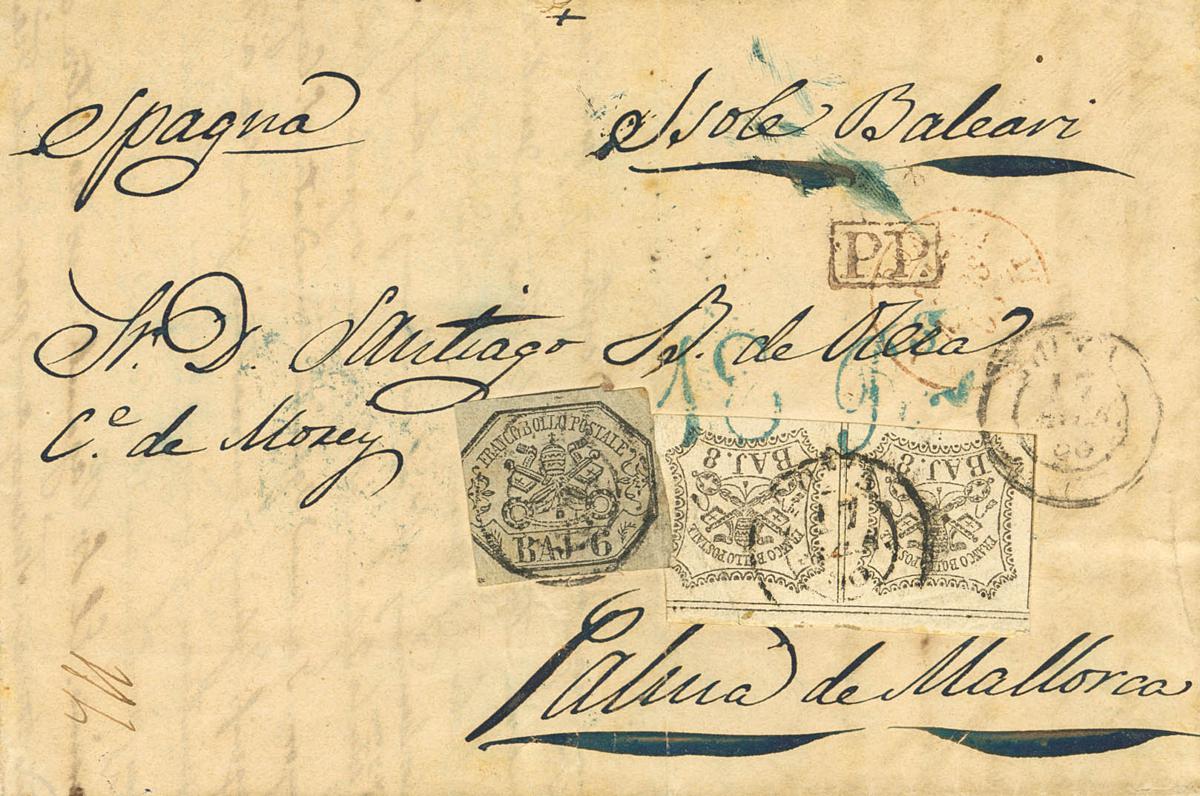 Spagna
Isole Baleari
P.P.
Sr. D. Santiago B. de
Ce. de Morey
FRANCO BOLLO POSTALE
BAJ 6
BAJ. 8
FRANCO BOLLO POSTALE
BAJ. 8
FRANCO BOLLO POSTALE
17
66
Palma de Mallorca